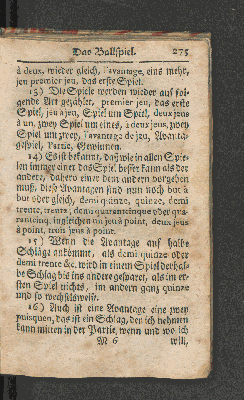 Das Ballspiel. 275
à deux, wieder gleich, l'avantage, eins mehr,
jen premier jeu, das erste Spiel.
13) Die Spiele werden wieder auf fol-
gende Art gezählet, premier jeu, das erste
Spiel, jeu a jeu, Spiel um Spiel, deux jeux
à un, zwey Spiel um eines, à deux jeux, zwey
Spiel um zwey, l'avantage de jeu, Avanta-
gespiel, Partie, Gewinnen.
14) Es ist bekannt, daß wie in allen Spie-
len immer einer das Spiel besser kann als der
andere, dahero einer dem andern vorgeben
muß. Diese Avantagen sind nun noch but à
but oder gleich, demi quinze, quinze, demi
trente, trente, demi quarantecinque oder qua-
rantecinq, ingleichen au jeu à point, deux jeux
à point, trois jeux à point.
15) Wenn die Avantage auf halbe
Schläge ankömmt, als demi quinze oder
demi trente &c. wird in einem Spiel der hal-
be Schlag bis ins andere gesparet, als im er-
sten Spiel nichts, im andern ganz quinze
und so wechselsweise.
16) Auch ist eine Avantage eine zwey
puisquen, das ist ein Schlag, den ich nehmen
kann mitten in der Partie, wenn und wo ich
M 6 will,